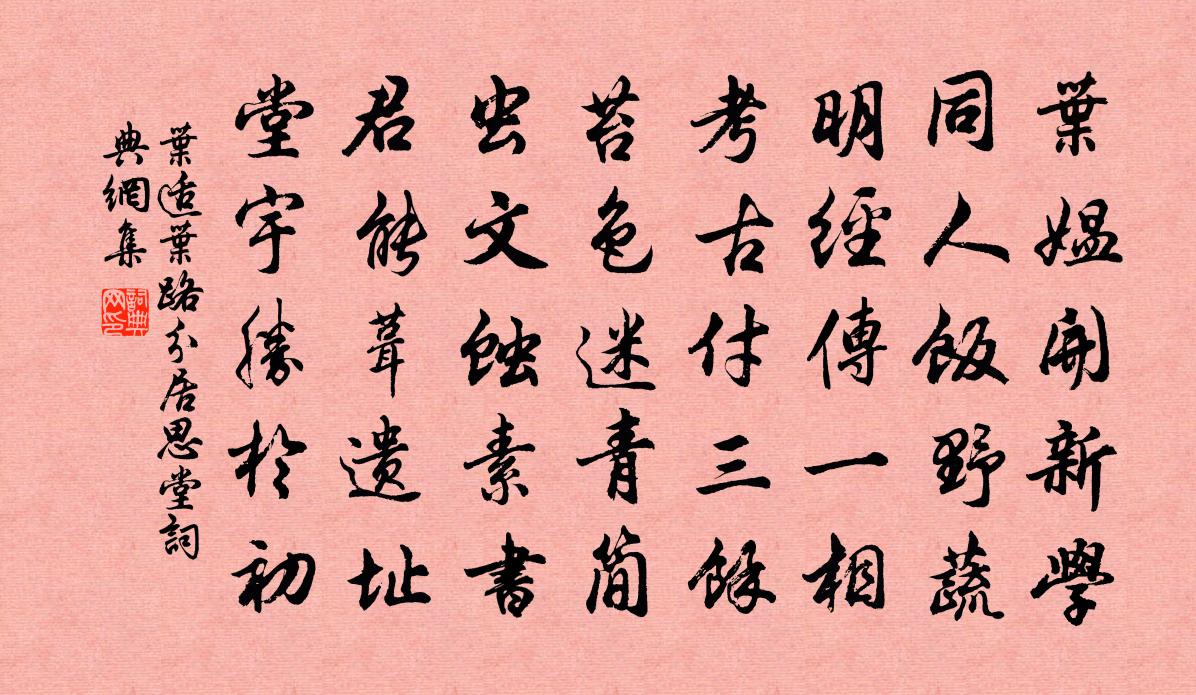 葉媪開新學
同人飯野蔬
明經傳一相
考古付三餘
苔色迷青简
虫文蝕素書
君能葺遗址
堂宇勝於初
葉適葉路分居思堂詞
典網集
詞典網印